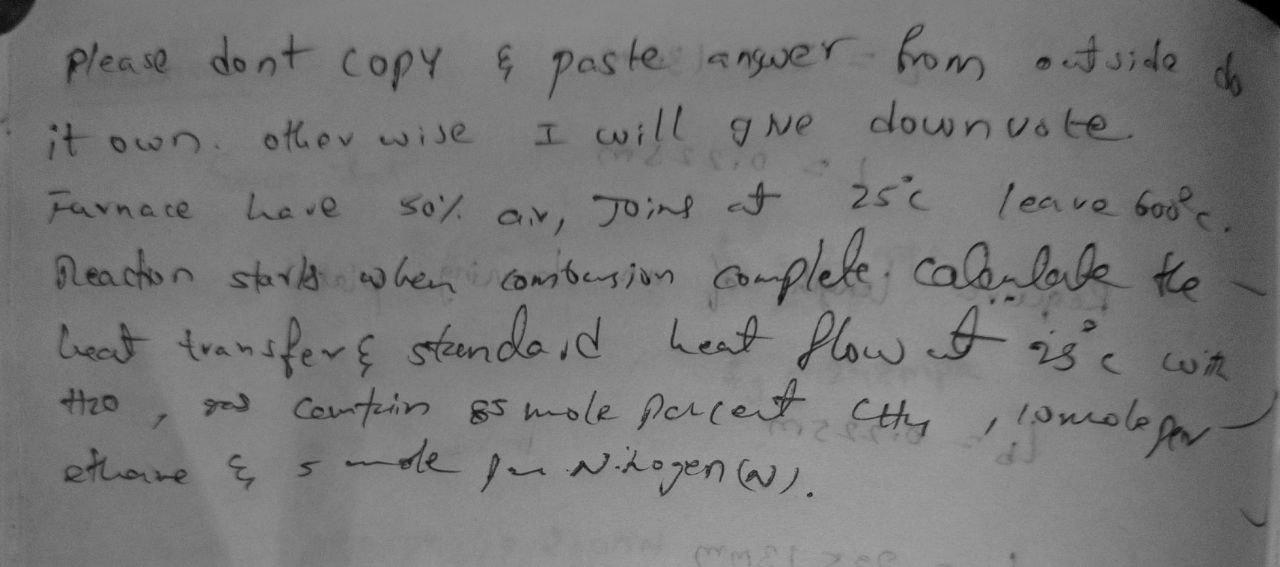 please dont copy & paste answer from outside do
it own. otherwise I will give downvote.
Furnace have 50% air, Joins at 25°c leave 600°c.
Reaction starts when combusion complete. calculate the
heat transfer & standard heat flow at 25°c with
H20, gas contain 85 mole percent CH4, 10 mole per
ethane & 5 mole per Nitrogen (N).